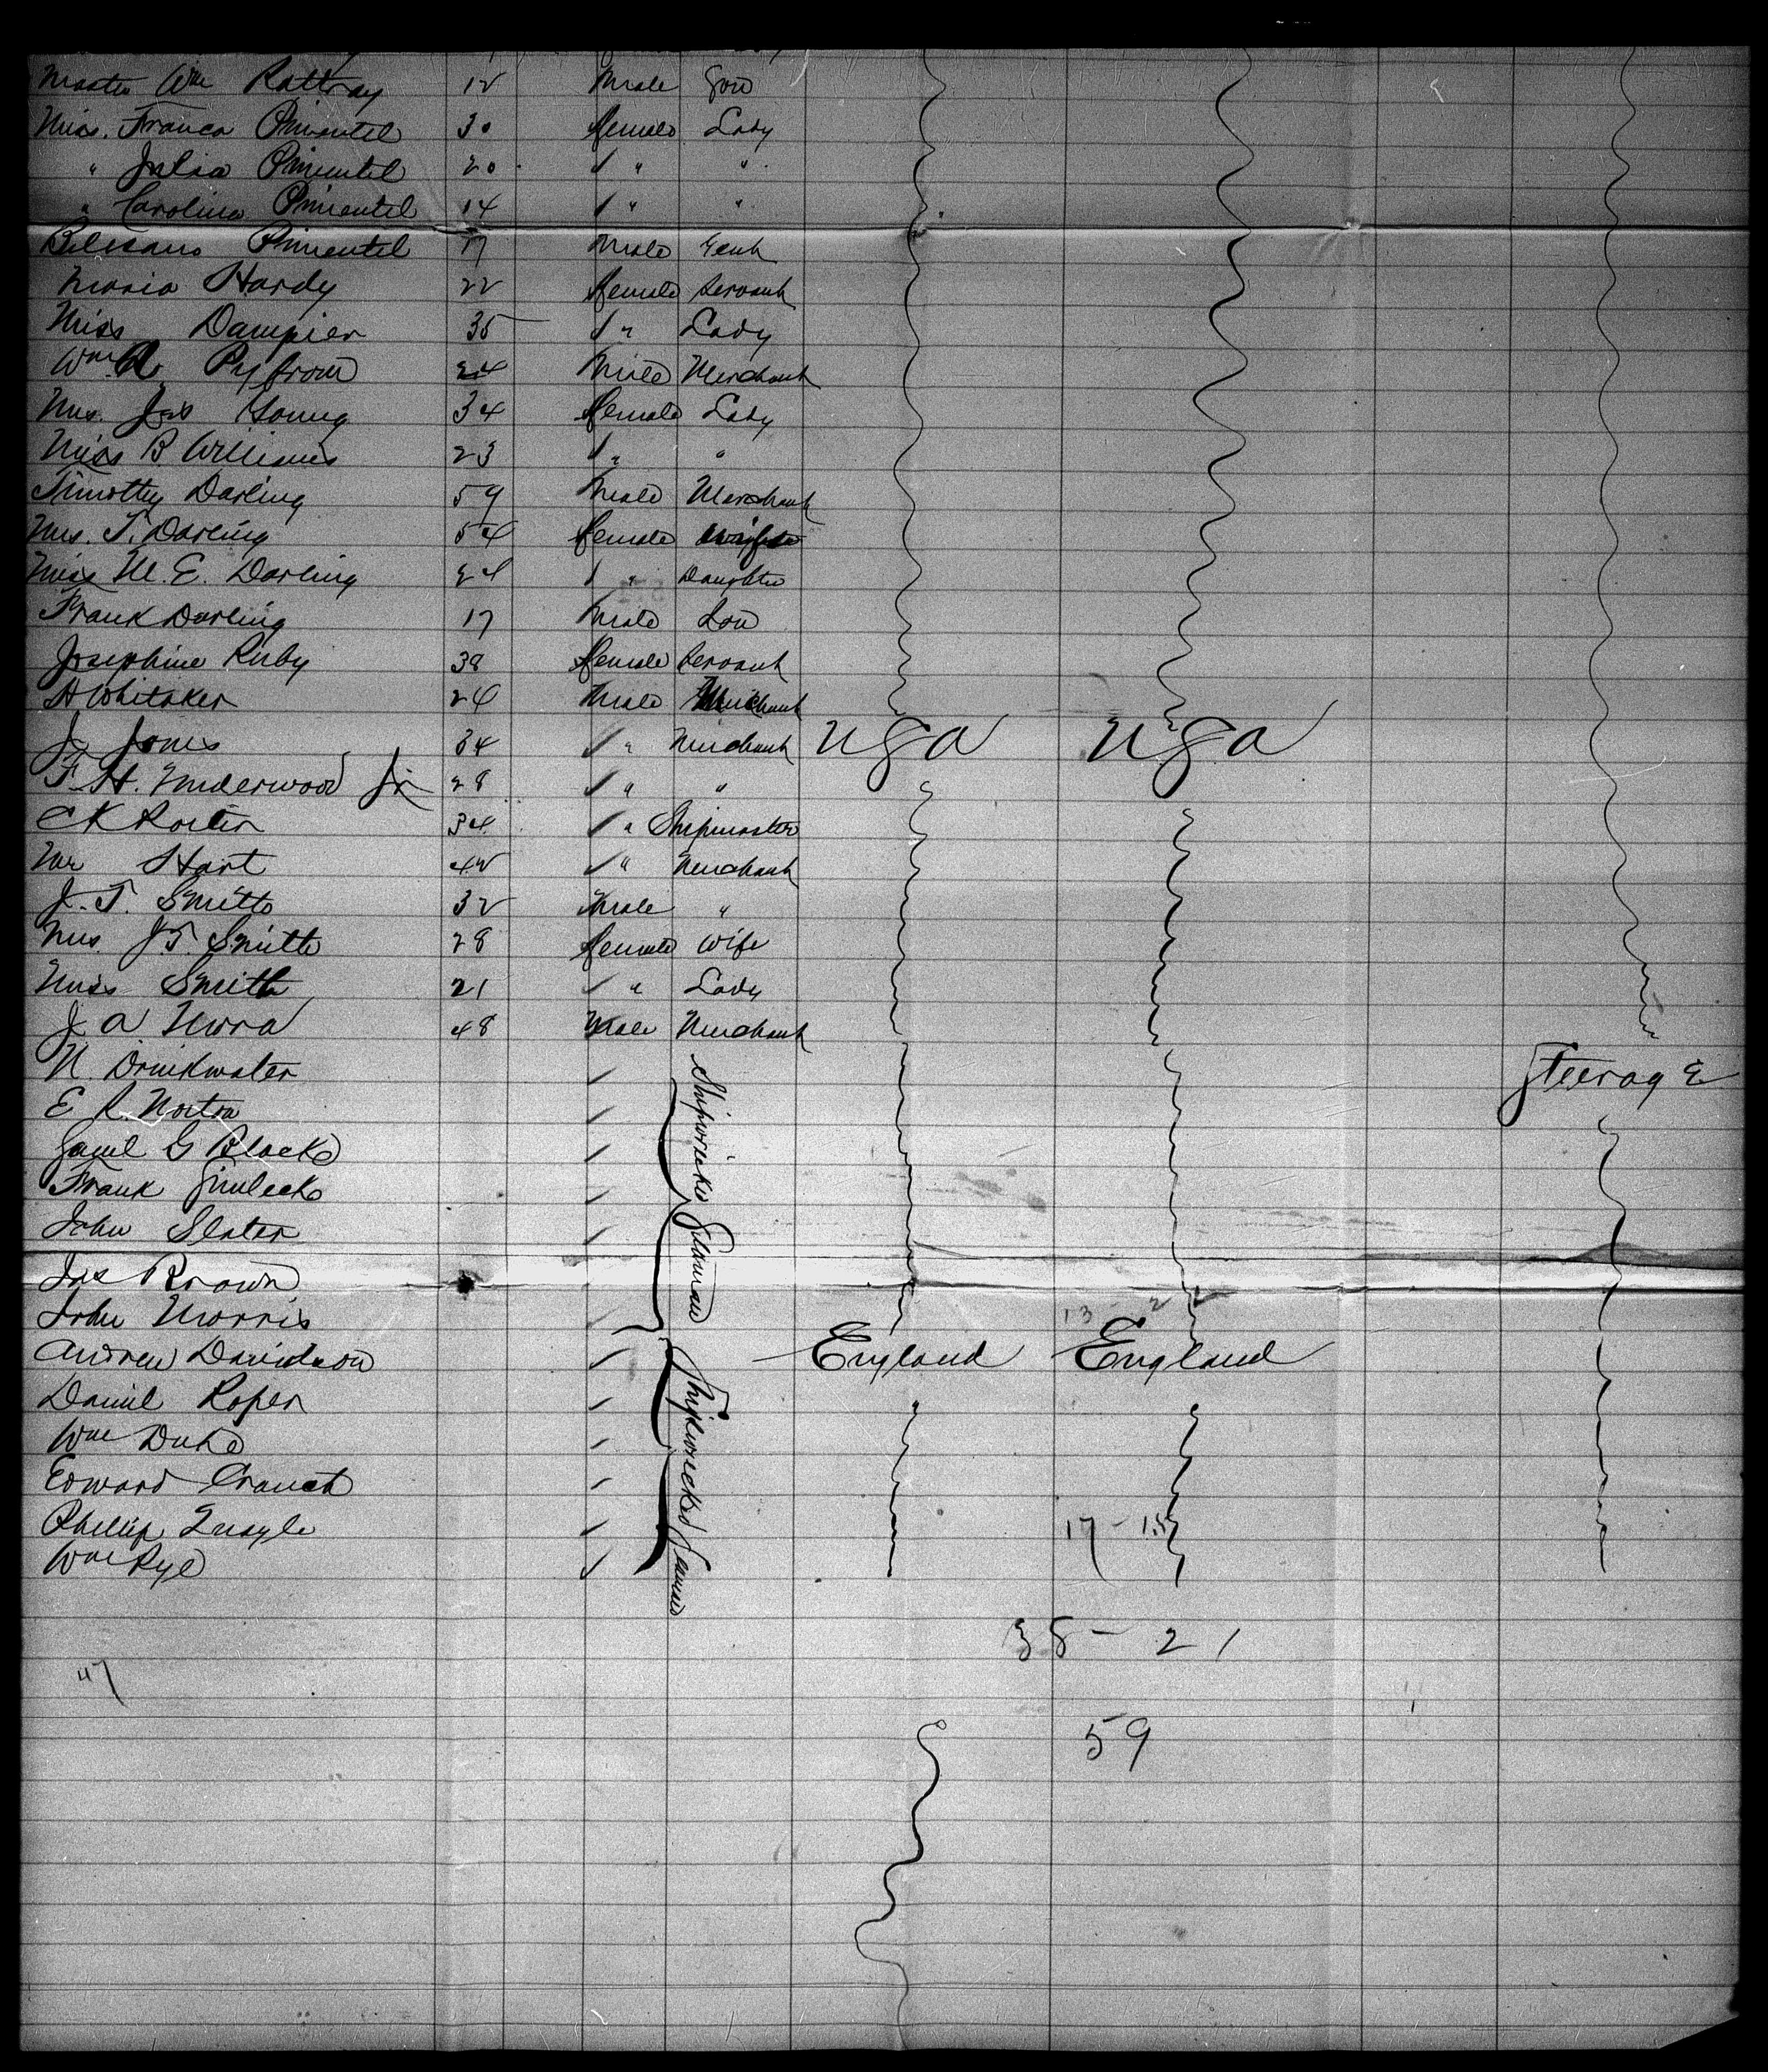 Master Wm Rattray 12 Male Son
Miss. Franca Pimentel 30 female Lady
" Julia Pimentel 20 " "
" Carolina Pimentel 14 " "
Pimentel 17 Male Gent
Maria Hardy 22 female Servant
Miss Dampier 35 " Lady
Wm R Pyfrom 24 Male Merchant
Mrs. Jas Young 34 female Lady
Miss B. Williams 23 " "
Timothy Darling 59 Male Merchant
Mrs. T. Darling 54 female wife
Miss M. E. Darling 24 " Daughter
Frank Darling 17 Male Son
Josephine Rigby 38 female Servant
H Whitaker 24 Male Merchant
J. Jones 34 " Merchant USA USA
F. H. Underwood Jr 28 " "
C K 34 " Shipmaster
Mr Hart 42 " Merchant
J. T. Smith 32 Male "
Mrs J T. Smith 28 female Wife
Miss Smith 21 " Lady
J A 48 Male Merchant
N. Drinkwater Steerage
E R. Norton
Saml G Blake
Frank
John Slater
Jas Brown
John Morris
Shipwrecked Seaman
13 - 2
Andrew Davidson England England
Daniel Roper
Wm Duke
Edward Crouch
Phillip Quayle 17 - 15
Wm Rye
Shipwrecked Seamen
38 - 21
47
59